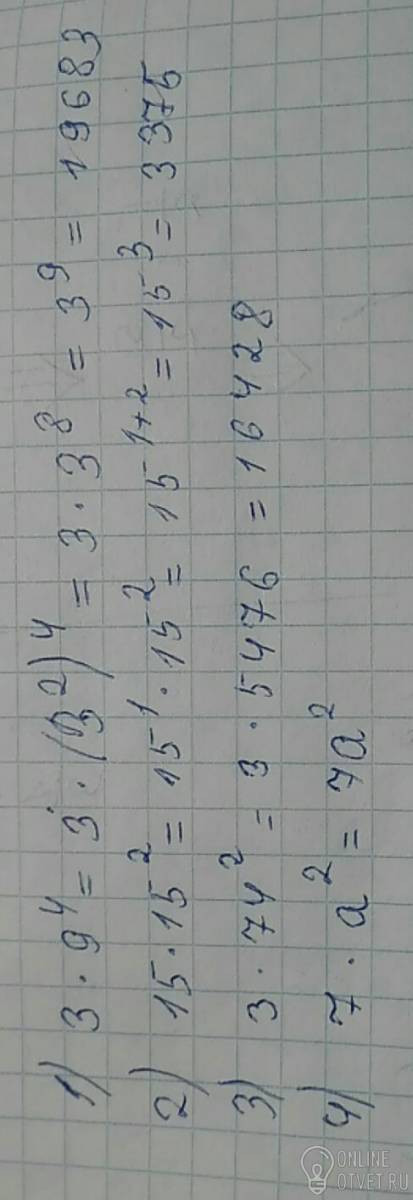 1) 3 · 9⁴ = 3 · (3²)⁴ = 3 · 3⁸ = 3⁹ = 19683
2) 15 · 15² = 15¹ · 15² = 15¹⁺² = 15³ = 3375
3) 3 · 74² = 3 · 5476 = 16428
4) 7 · a² = 7a²
ONLINE
OTVET.RU